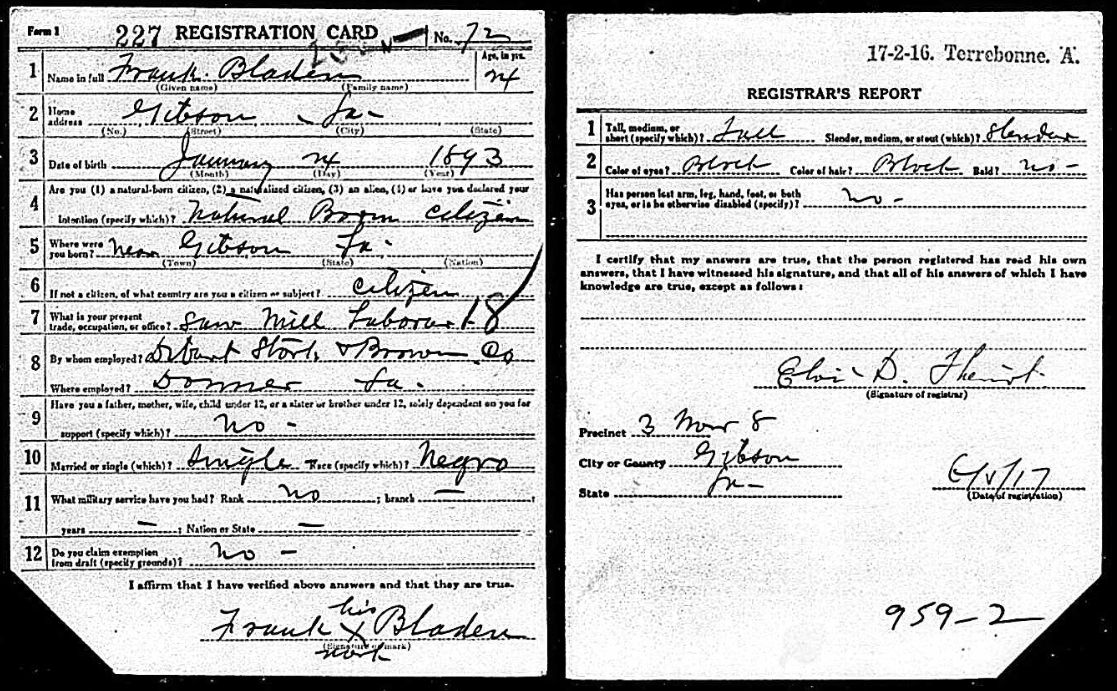 Form 1 227 REGISTRATION CARD No. 72
1 Name in full Frank Bladen Age, in yrs. 24
(Given name) (Family name)
2 Home address Gibson La-
(No.) (Street) (City) (State)
3 Date of birth January 24 1893
(Month) (Day) (Year)
4 Are you (1) a natural-born citizen, (2) a naturalized citizen, (3) an alien, (4) or have you declared your
intention (specify which)? Natural Born citizen
5 Where were you born? near Gibson La-
(Town) (State) (Nation)
6 If not a citizen, of what country are you a citizen or subject? citizen
7 What is your present trade, occupation, or office? Saw Mill Laborer 18
8 By whom employed? & Brown Co
Where employed? Donner La-
9 Have you a father, mother, wife, child under 12, or a sister or brother under 12, solely dependent on you for
support (specify which)? No -
10 Married or single (which)? Single Race (specify which)? Negro
11 What military service have you had? Rank no ; branch — ;
years — ; Nation or State —
12 Do you claim exemption from draft (specify grounds)? No -
I affirm that I have verified above answers and that they are true.
his
Frank X Bladen
(Signature or mark)
mark
17-2-16. Terrebonne. 'A.
REGISTRAR'S REPORT
1 Tall, medium, or short (specify which)? Tall Slender, medium, or stout (which)? Slender
2 Color of eyes? Black Color of hair? Black Bald? no -
3 Has person lost arm, leg, hand, foot, or both
eyes, or is he otherwise disabled (specify)? No -
I certify that my answers are true, that the person registered has read his own
answers, that I have witnessed his signature, and that all of his answers of which I have
knowledge are true, except as follows:
D. Theriot
(Signature of registrar)
Precinct 3 Ward 8
City or County Gibson
State La-
6/5/17
(Date of registration)
959-2